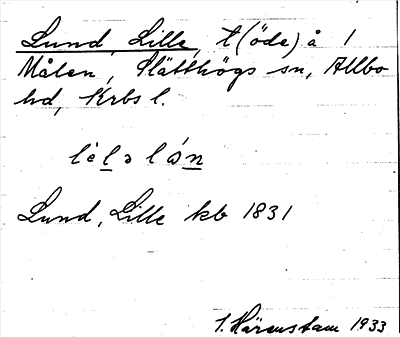 Lund, Lille, t (öde) å 1
Målen, Slätthögs sn, Allbo
hd, Krbs l.
lèlə lón
Lund, Lille kb 1831
I. Härenstam 1933